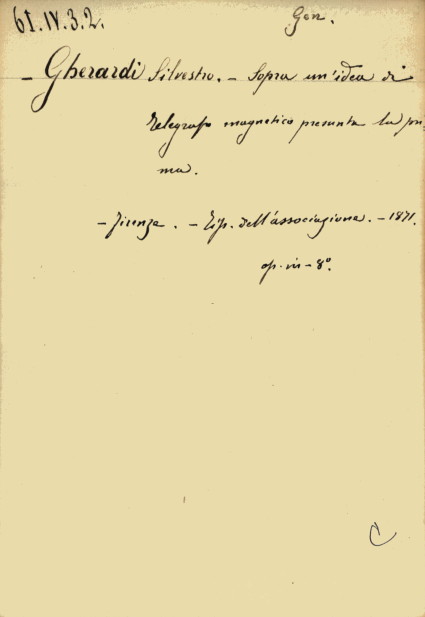 61.IV.3.2.
Gen.
- Gherardi Silvestro. - Sopra un'idea di
telegrafo magnetico presunta la pri-
ma.
- Firenze. - Tip. dell'associazione. - 1871.
op. in - 8º.
C